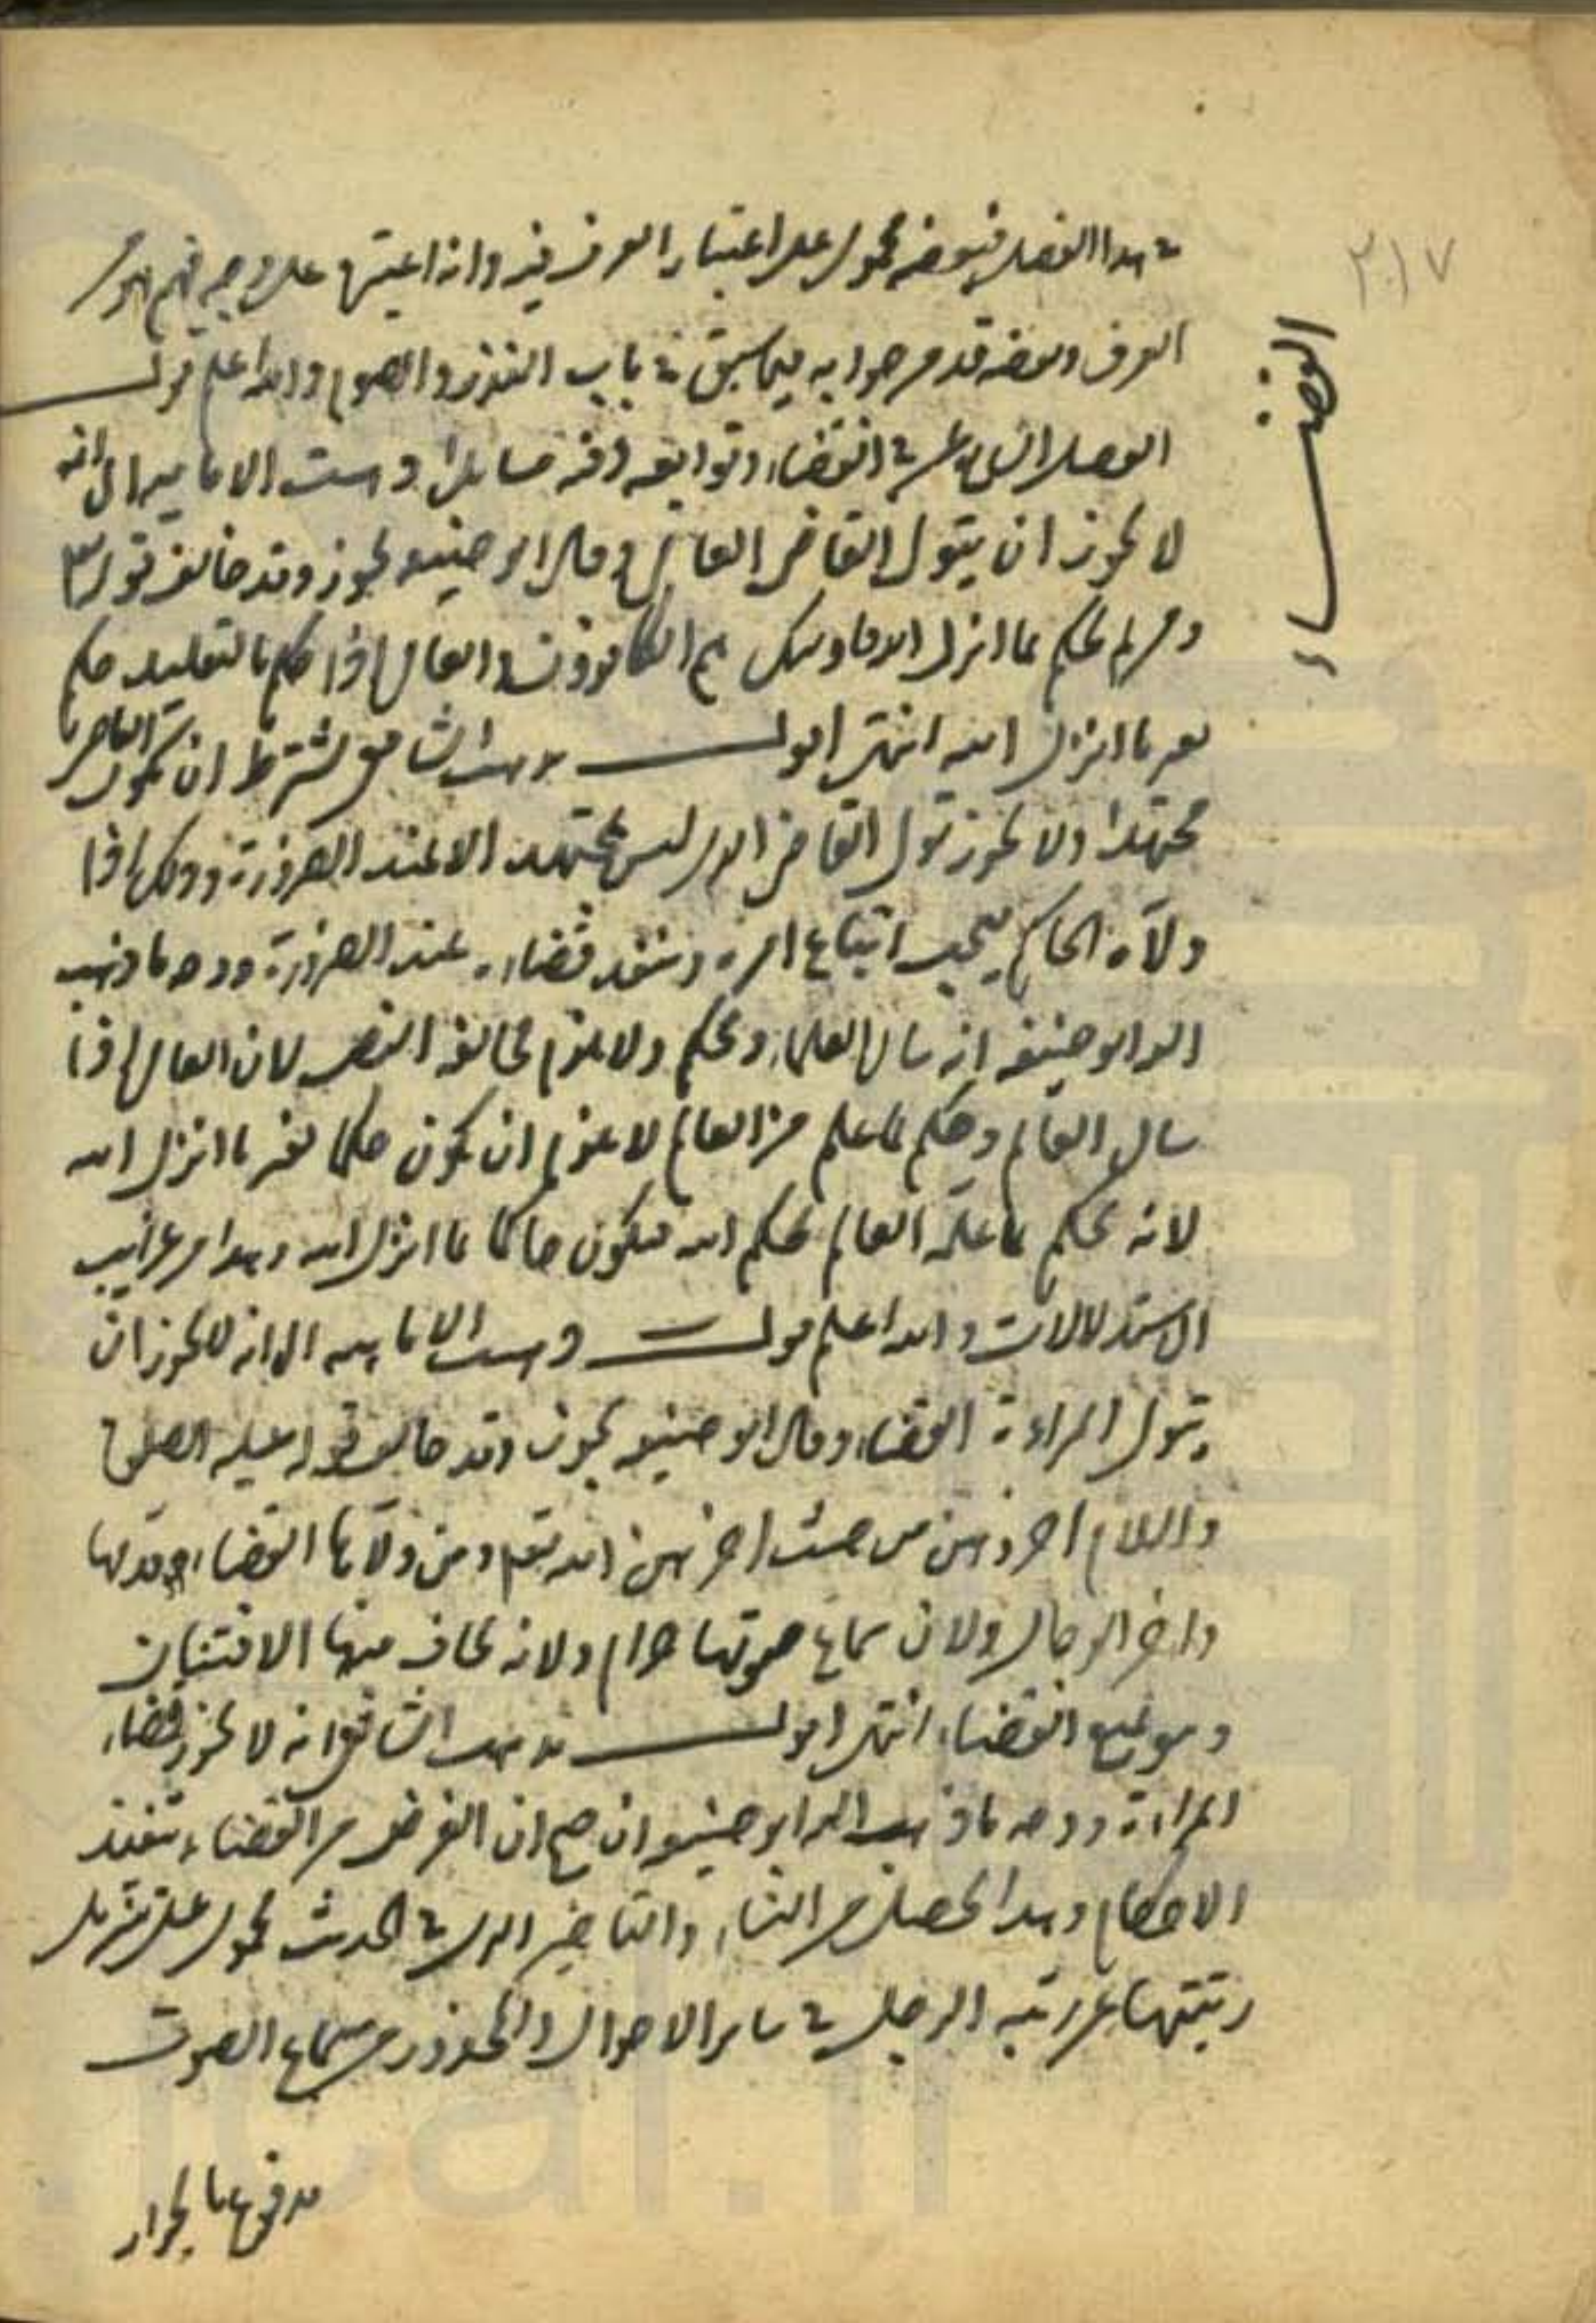 ٢١٧
القضاء
في هذا الفصل فبعضه محمول على اعتبار العرف فيه وانه اعتبرها على وجه فهم اهل
العرف وبعضه قد مر جوابه فيما سبق في باب النذر والصوم والله اعلم قوله
الفصل السابع عشر في القضاء وتوابعه وفيه مسائل ا ذهبت الامامية الى انه
لا يجوز ان يتولى القاضي العامي وقال ابو حنيفة يجوز وقد خالف قوله تعالى
ومن لم يحكم بما انزل الله فاولئك هم الكافرون والعامي اذا حكم بالتقليد حكم
بغير ما انزل الله انتهى اقول مذهب الشافعي يشترط ان يكون القاضي
مجتهدا ولا يجوز تولي القاضي الذي ليس بمجتهد الا عند الضرورة وذلك اذا
ولاه الحاكم يجب اتباع امره وينفذ قضاءه عند الضرورة ووجه ما ذهب
اليه ابو حنيفة انه يسأل العلماء ويحكم ولا يلزم مخالفة النص لان العامي اذا
سال العالم وحكم بما علم من العالم لا يلزم ان يكون حكما بغير ما انزل الله
لانه يحكم بما علمه العالم بحكم الله فيكون حاكما بما انزل الله وهذا من غرايب
الاستدلالات والله اعلم قوله ذهبت الامامية الى انه لا يجوز ان
يتولى المراءة القضاء وقال ابو حنيفة يجوز وقد خالف قوله عليه الصلوة
والسلام اخروهن من حيث اخرهن الله تعم ومن ولاها القضاء وقدمها
واخر الرجال ولان سماع صوتها حرام ولانه يخاف منها الافتتان
وهو يمنع القضاء انتهى اقول مذهب الشافعي انه لا يجوز قضاء
المراءة ووجه ما ذهب اليه ابو حنيفة ان صح ان الغرض من القضاء تنفيذ
الاحكام وهذا يحصل من النساء والتاخير الذي في الحديث محمول على تنزيل
رتبتها عن رتبة الرجل في ساير الاحوال والمحذور من سماع الصوت
مدفوع بالجواز